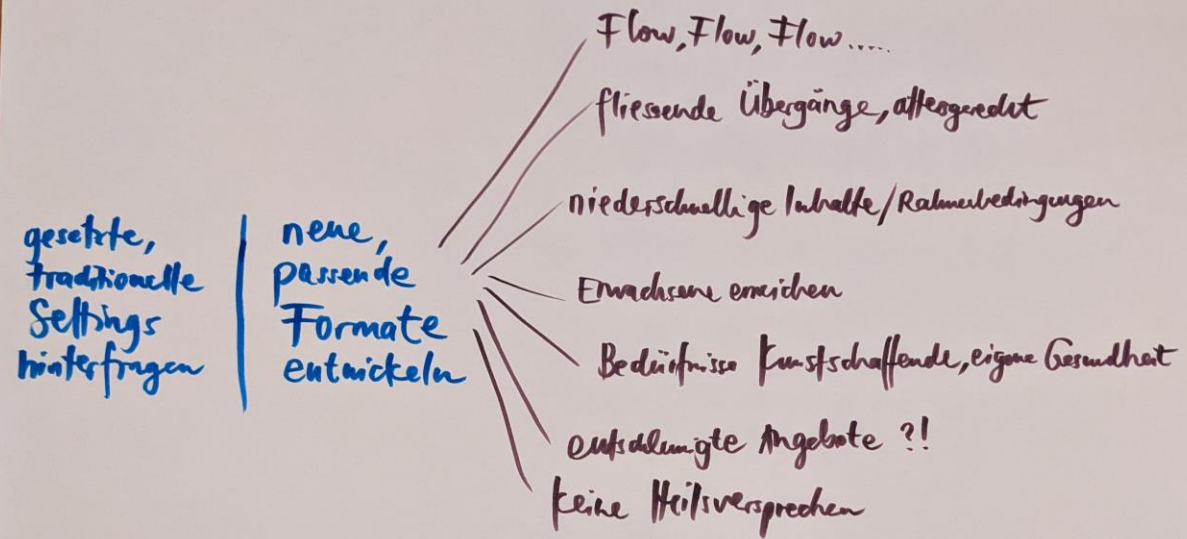 gesetzte,
traditionelle
Settings
hinterfragen
neue,
passende
Formate
entwickeln
Flow, Flow, Flow.....
fliessende Übergänge, altersgerecht
niederschwellige Inhalte/Rahmenbedingungen
Erwachsene erreichen
Bedürfnisse Kunstschaffende, eigene Gesundheit
entschleunigte Angebote ?!
keine Heilsversprechen